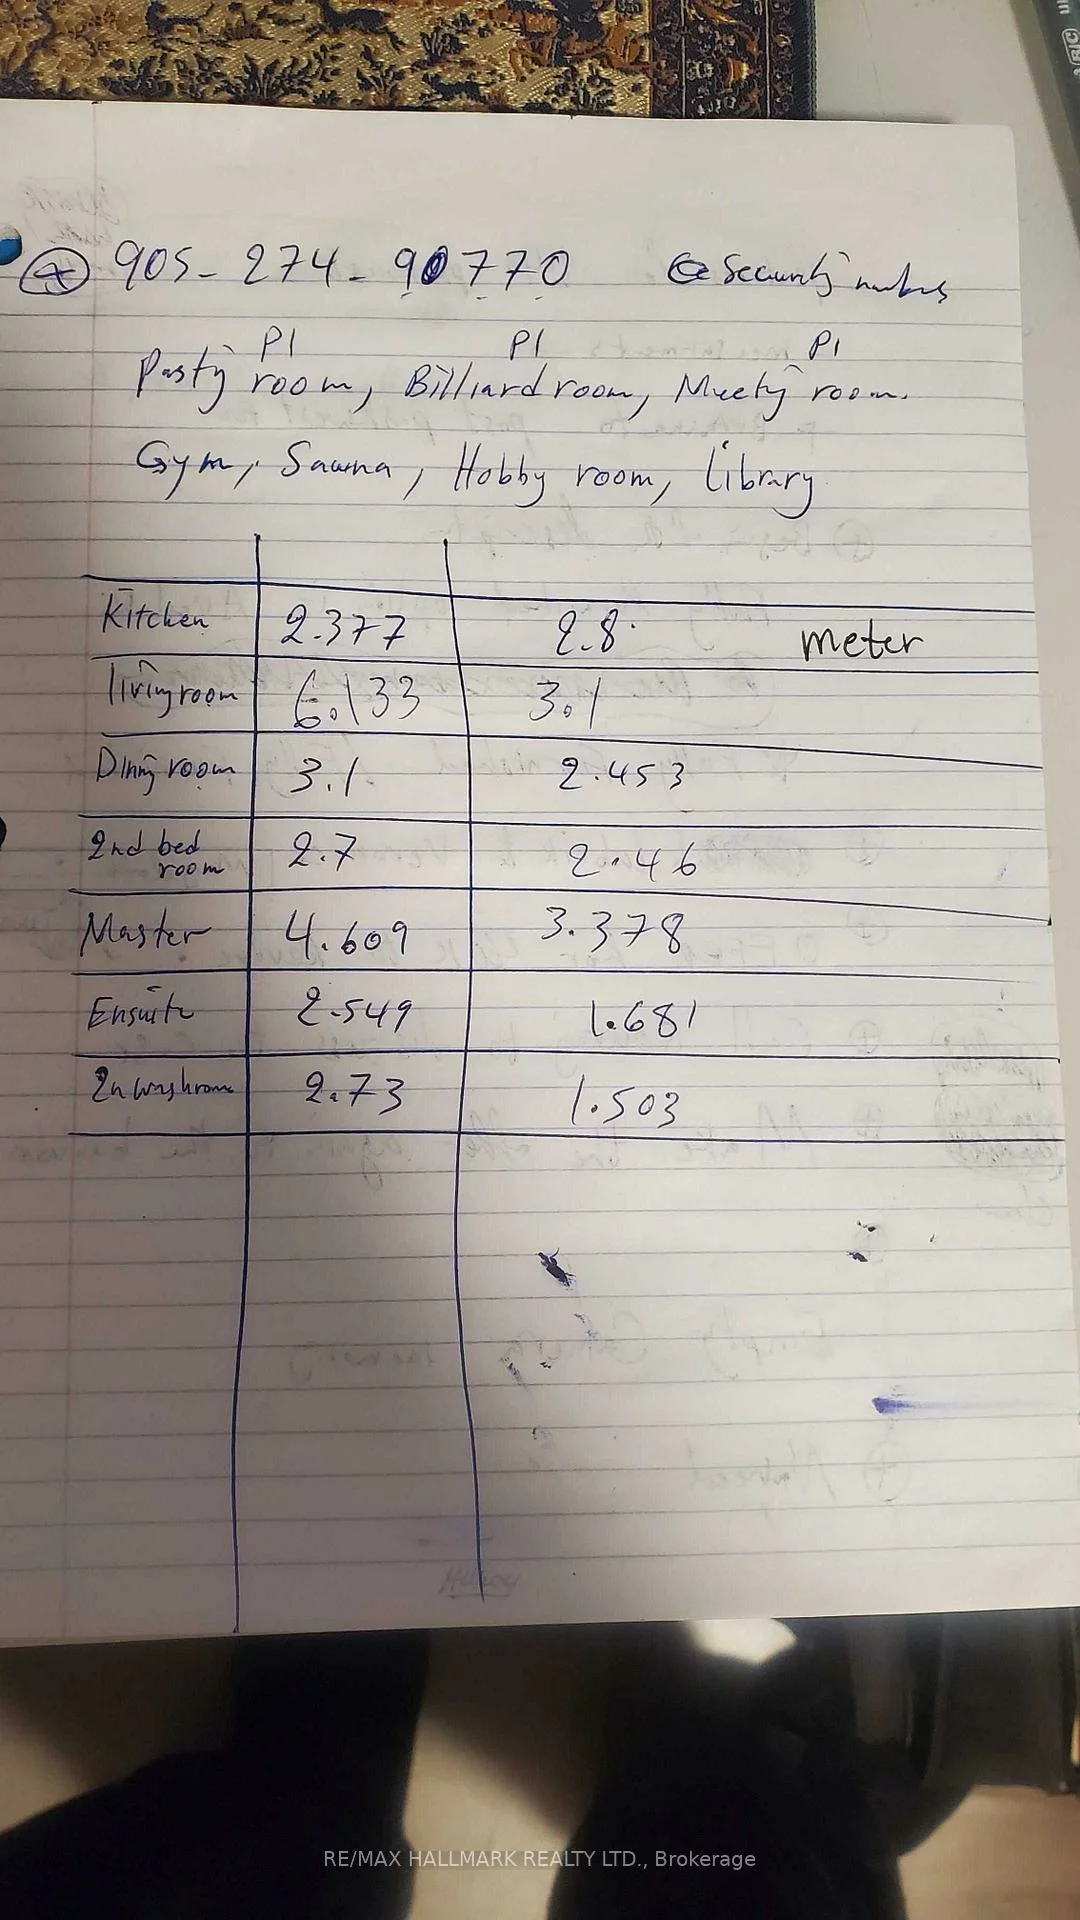 905-274-90770 Security numbers
P1 P1 P1
Party room, Billiard room, Meetg room.
Gym, Sauna, Hobby room, Library
Kitchen 2.377 2.8 meter
living room 6.133 3.1
Dinng room 3.1 2.453
2nd bed room 2.7 2.46
Master 4.609 3.378
Ensuite 2.549 1.681
2n washroom 2.73 1.503
Hilroy
RE/MAX HALLMARK REALTY LTD., Brokerage
BIC